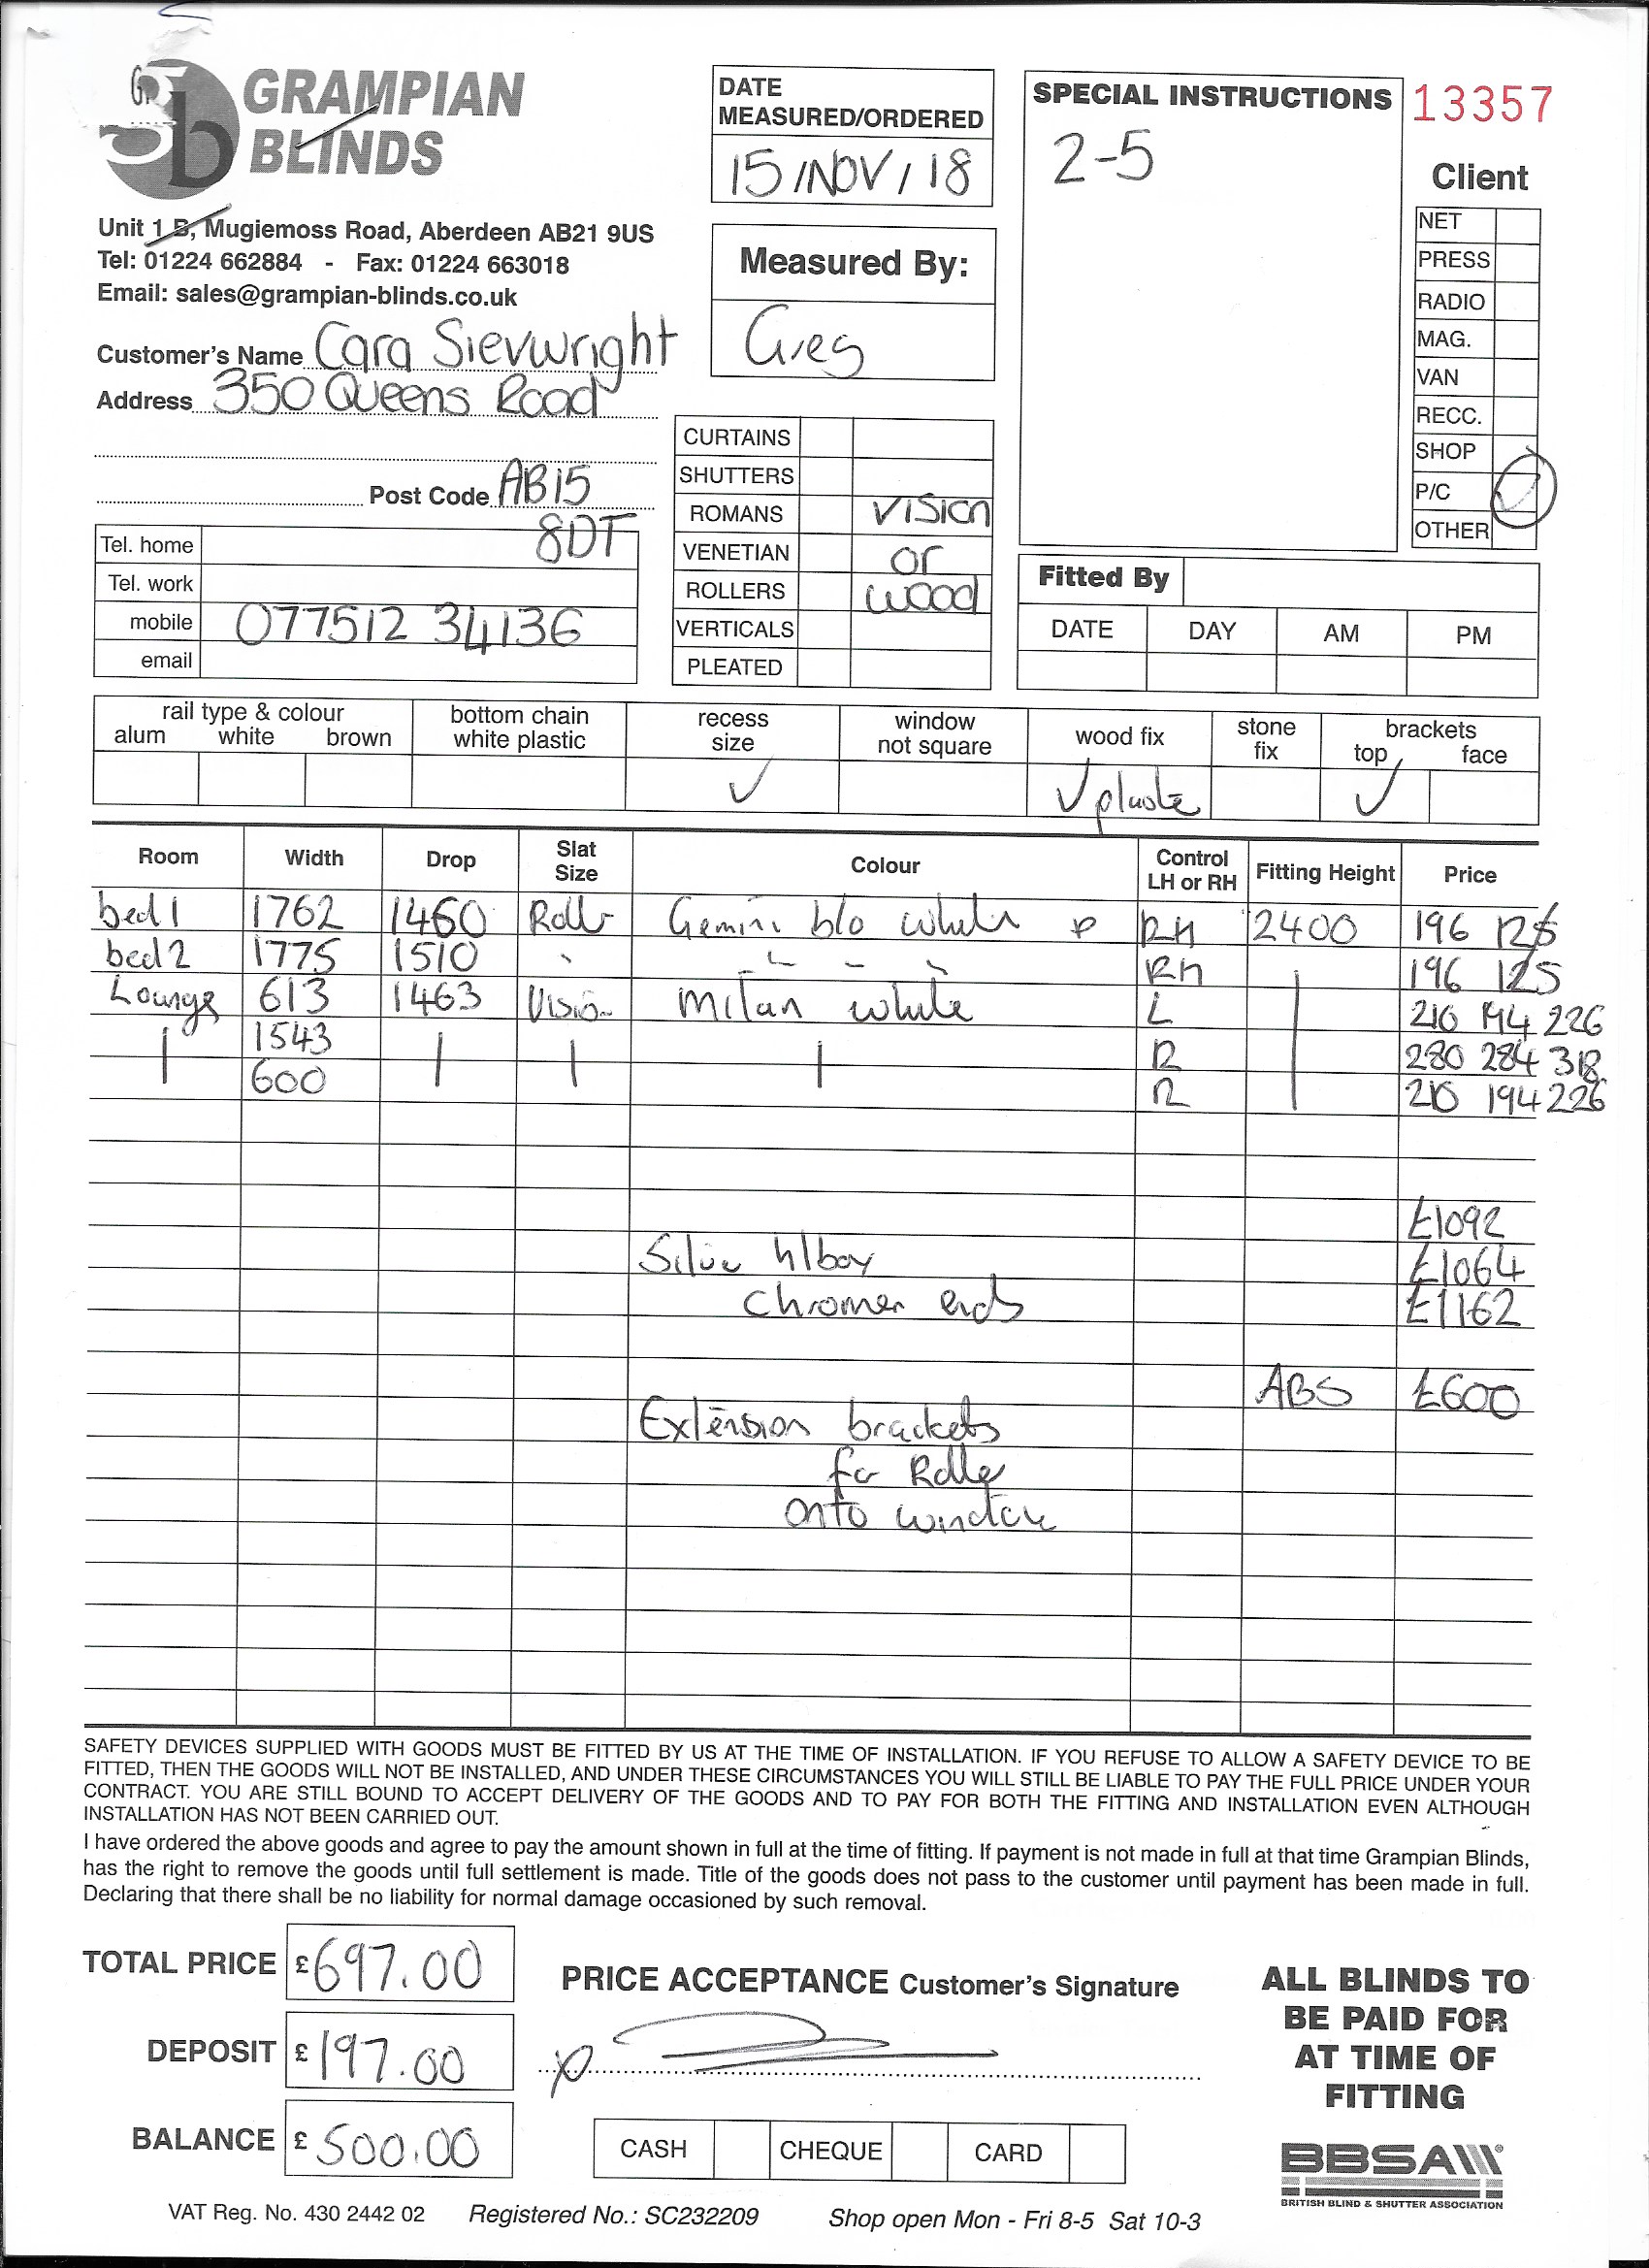 GRAMPIAN
BLINDS
Unit 1 B, Mugiemoss Road, Aberdeen AB21 9US
Tel: 01224 662884 - Fax: 01224 663018
Email: sales@grampian-blinds.co.uk
Customer's Name Cara Sievwright
Address 350 Queens Road
Post Code AB15
8DT
Tel. home
Tel. work
mobile 077512 34136
email
DATE
MEASURED/ORDERED
15/NOV/18
Measured By:
Greg
CURTAINS
SHUTTERS
ROMANS vision
VENETIAN or
ROLLERS wood
VERTICALS
PLEATED
SPECIAL INSTRUCTIONS
2-5
13357
Client
NET
PRESS
RADIO
MAG.
VAN
RECC.
SHOP
P/C ✓
OTHER
Fitted By
DATE DAY AM PM
rail type & colour
alum white brown
bottom chain
white plastic
recess
size
✓
window
not square
wood fix
✓
stone
fix
brackets
top face
✓
Room Width Drop Slat Size Colour Control LH or RH Fitting Height Price
bed 1 1762 1460 Roller Gemini b/o white RH 2400 196 125
bed 2 1775 1510 RH 196 125
Lounge 613 1463 Vision Milan white L 210 194 226
1543 R 280 284 318
600 R 210 194 226
£1092
£1064
£1162
chrome ends
ABS £600
Extension brackets
for Roller
onto window
SAFETY DEVICES SUPPLIED WITH GOODS MUST BE FITTED BY US AT THE TIME OF INSTALLATION. IF YOU REFUSE TO ALLOW A SAFETY DEVICE TO BE
FITTED, THEN THE GOODS WILL NOT BE INSTALLED, AND UNDER THESE CIRCUMSTANCES YOU WILL STILL BE LIABLE TO PAY THE FULL PRICE UNDER YOUR
CONTRACT. YOU ARE STILL BOUND TO ACCEPT DELIVERY OF THE GOODS AND TO PAY FOR BOTH THE FITTING AND INSTALLATION EVEN ALTHOUGH
INSTALLATION HAS NOT BEEN CARRIED OUT.
I have ordered the above goods and agree to pay the amount shown in full at the time of fitting. If payment is not made in full at that time Grampian Blinds,
has the right to remove the goods until full settlement is made. Title of the goods does not pass to the customer until payment has been made in full.
Declaring that there shall be no liability for normal damage occasioned by such removal.
TOTAL PRICE £697.00
DEPOSIT £197.00
BALANCE £500.00
PRICE ACCEPTANCE Customer's Signature
CASH CHEQUE CARD
ALL BLINDS TO
BE PAID FOR
AT TIME OF
FITTING
BBSA
BRITISH BLIND & SHUTTER ASSOCIATION
VAT Reg. No. 430 2442 02 Registered No.: SC232209 Shop open Mon - Fri 8-5 Sat 10-3